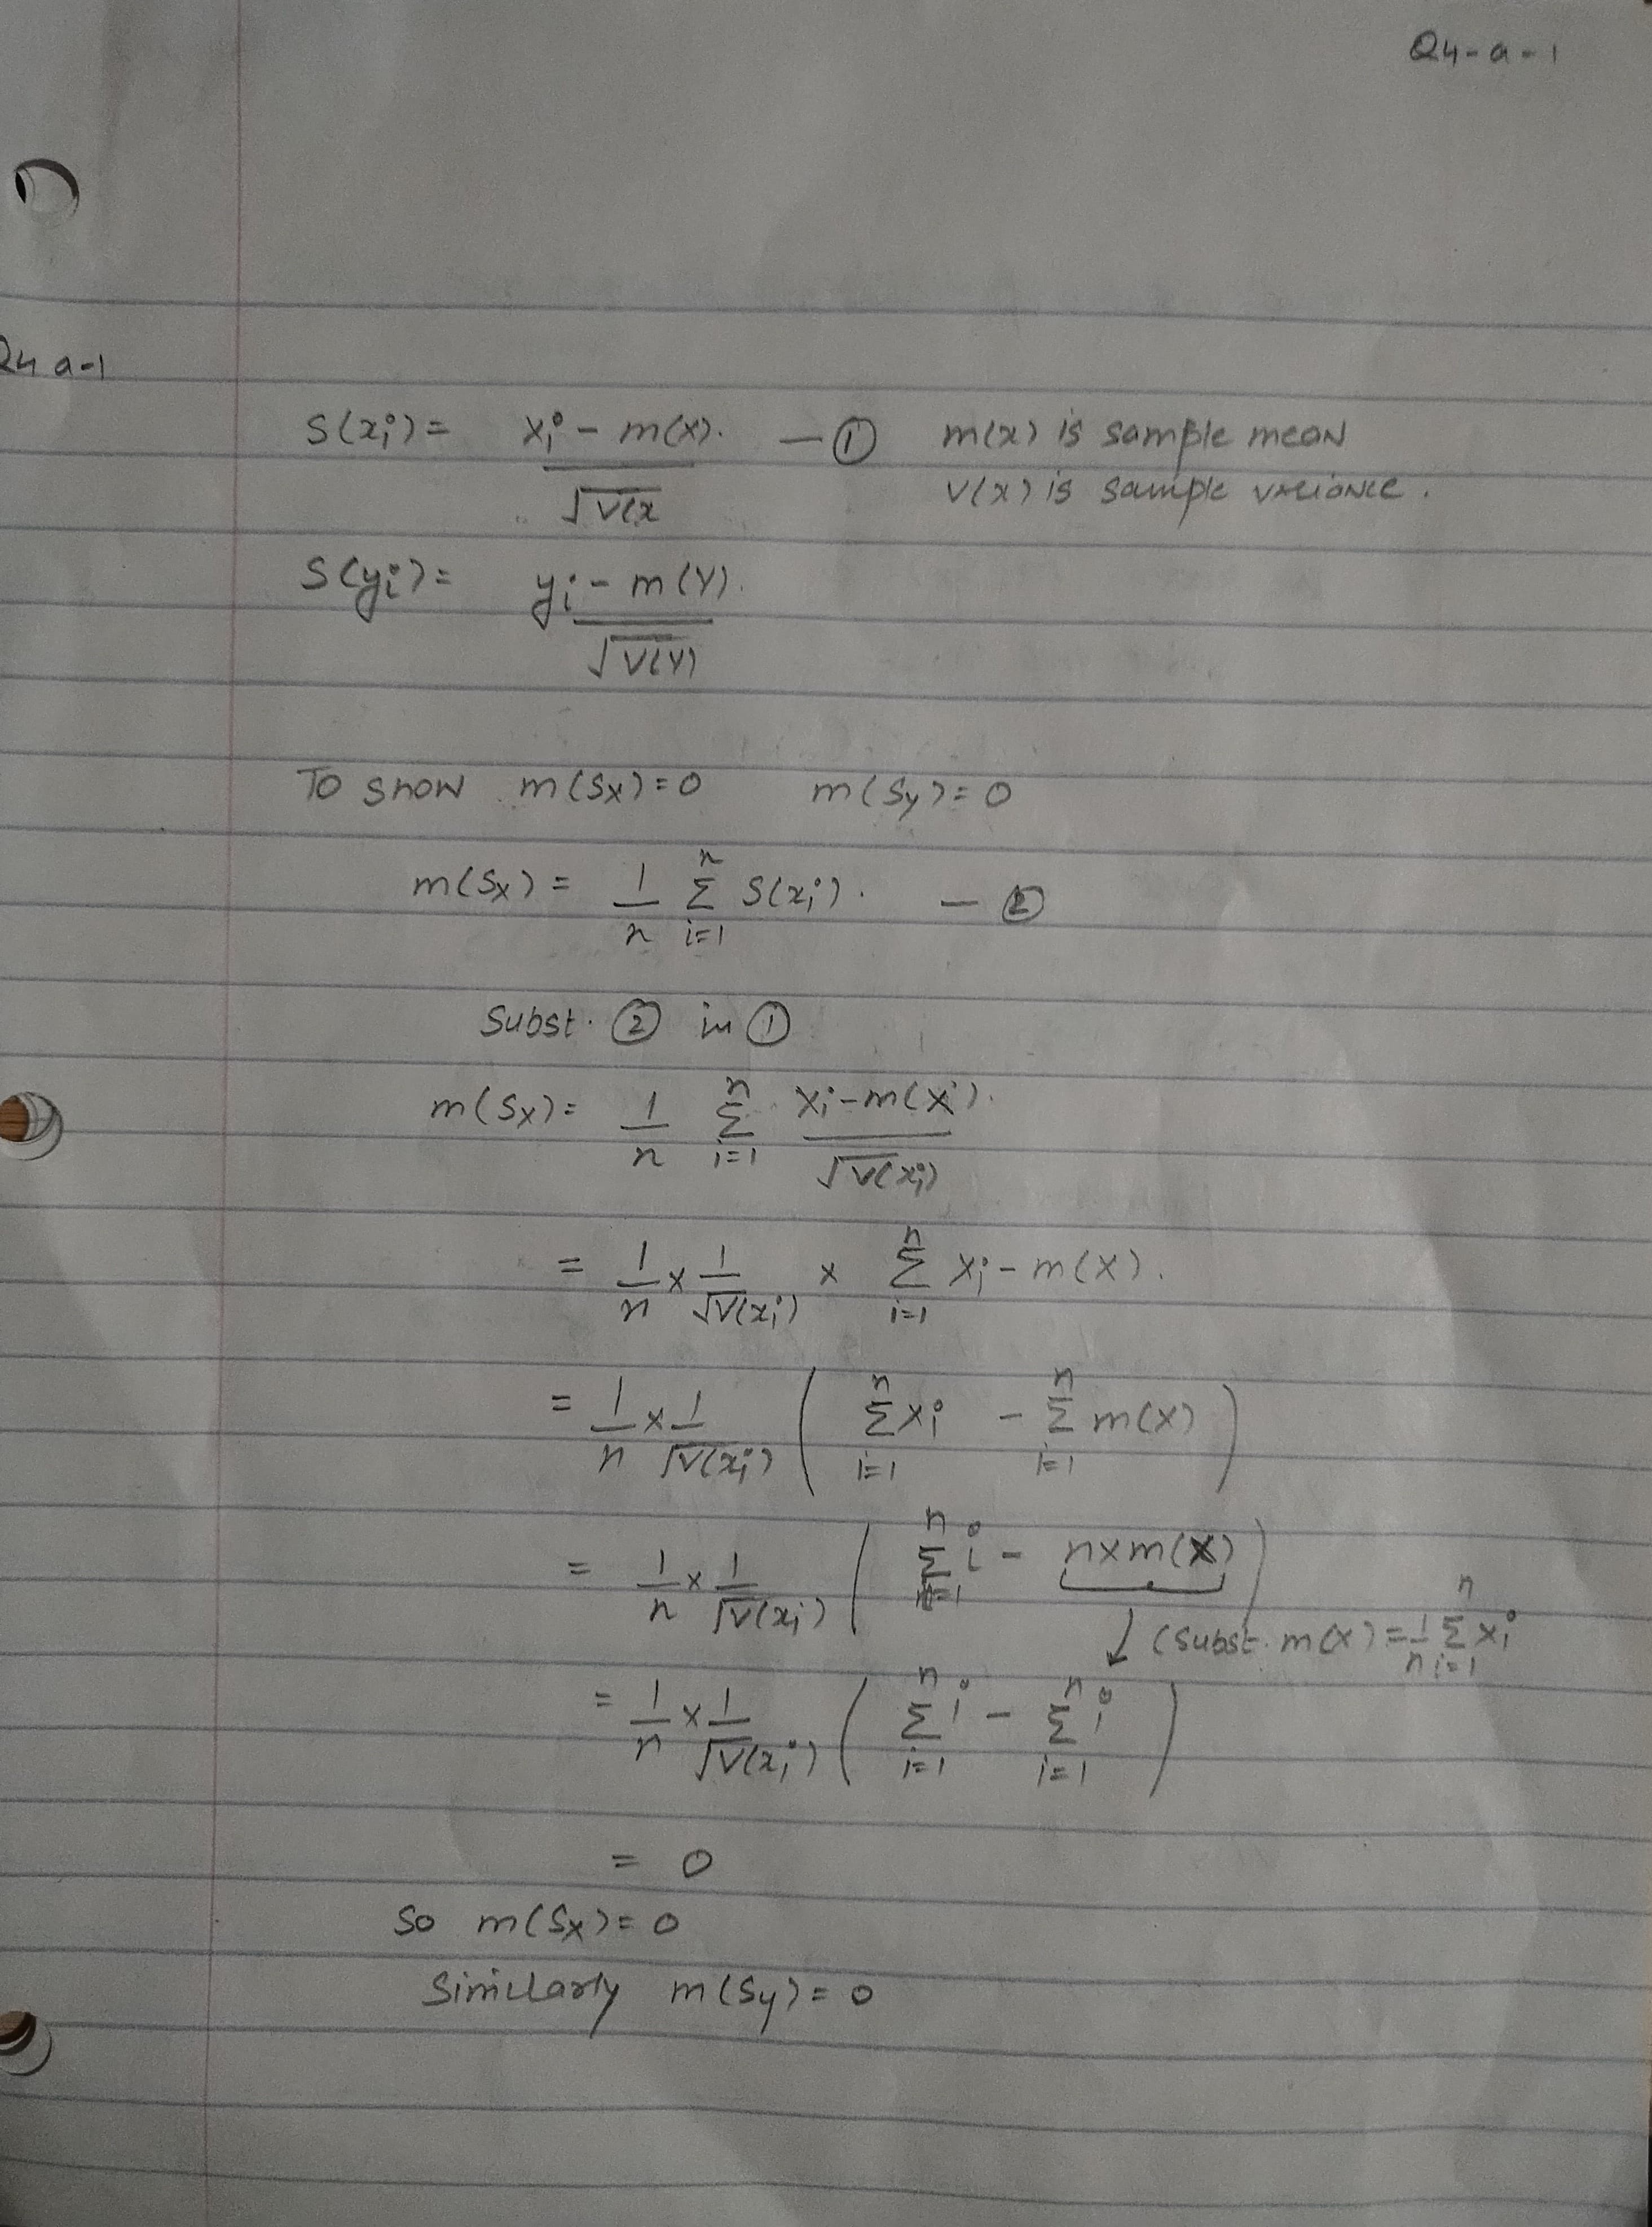 Q4-a-1
Q4 a-1
S(xi) = xi - m(x). / √V(x — ① m(x) is sample mean
V(x) is sample variance.
S(yi) = yi - m(Y). / √V(Y)
To show m(Sx) = 0 m(Sy) = 0
m(Sx) = 1/n Σ_{i=1}^{n} S(xi). — ②
Subst. ② in ①
m(Sx) = 1/n Σ_{i=1}^{n} xi - m(x). / √V(xi)
= 1/n × 1/√V(xi) × Σ_{i=1}^{n} xi - m(x).
= 1/n × 1/√V(xi) ( Σ_{i=1}^{n} xi - Σ_{i=1}^{n} m(x) )
= 1/n × 1/√V(xi) ( Σ_{i=1}^{n} i - n×m(x) )
↓ (Subst. m(x) = 1/n Σ_{i=1}^{n} xi
= 1/n × 1/√V(xi) ( Σ_{i=1}^{n} i - Σ_{i=1}^{n} i )
= 0
So m(Sx) = 0
Similarly m(Sy) = 0